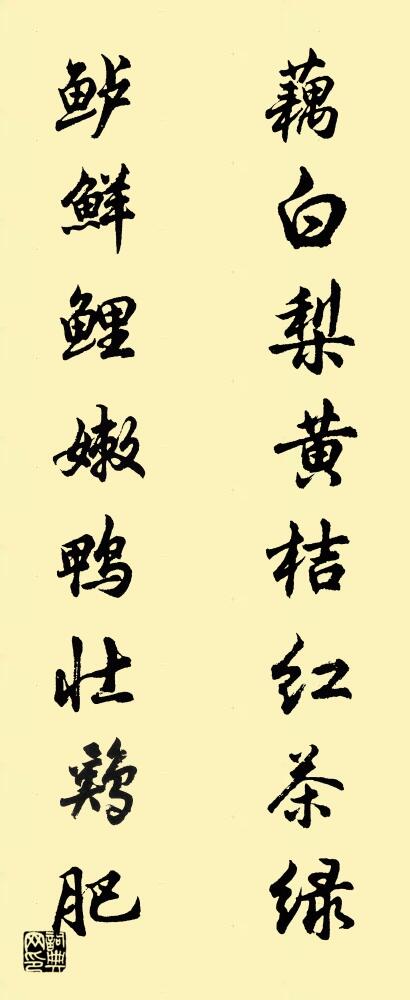 藕白梨黄桔红茶绿
鲈鲜鲤嫩鸭壮鷄肥